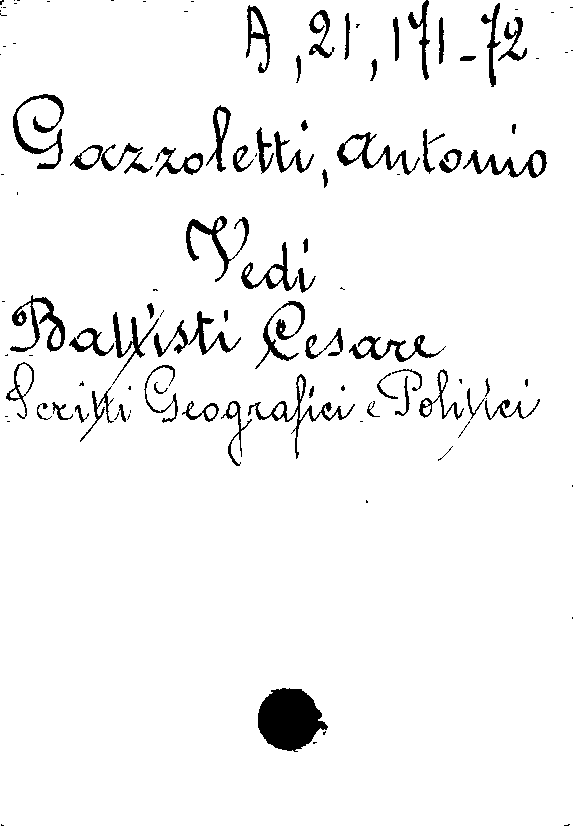 A, 21, 171-72
Gazzoletti, Antonio
Vedi
Battisti Cesare
Scritti Geografici e Politici